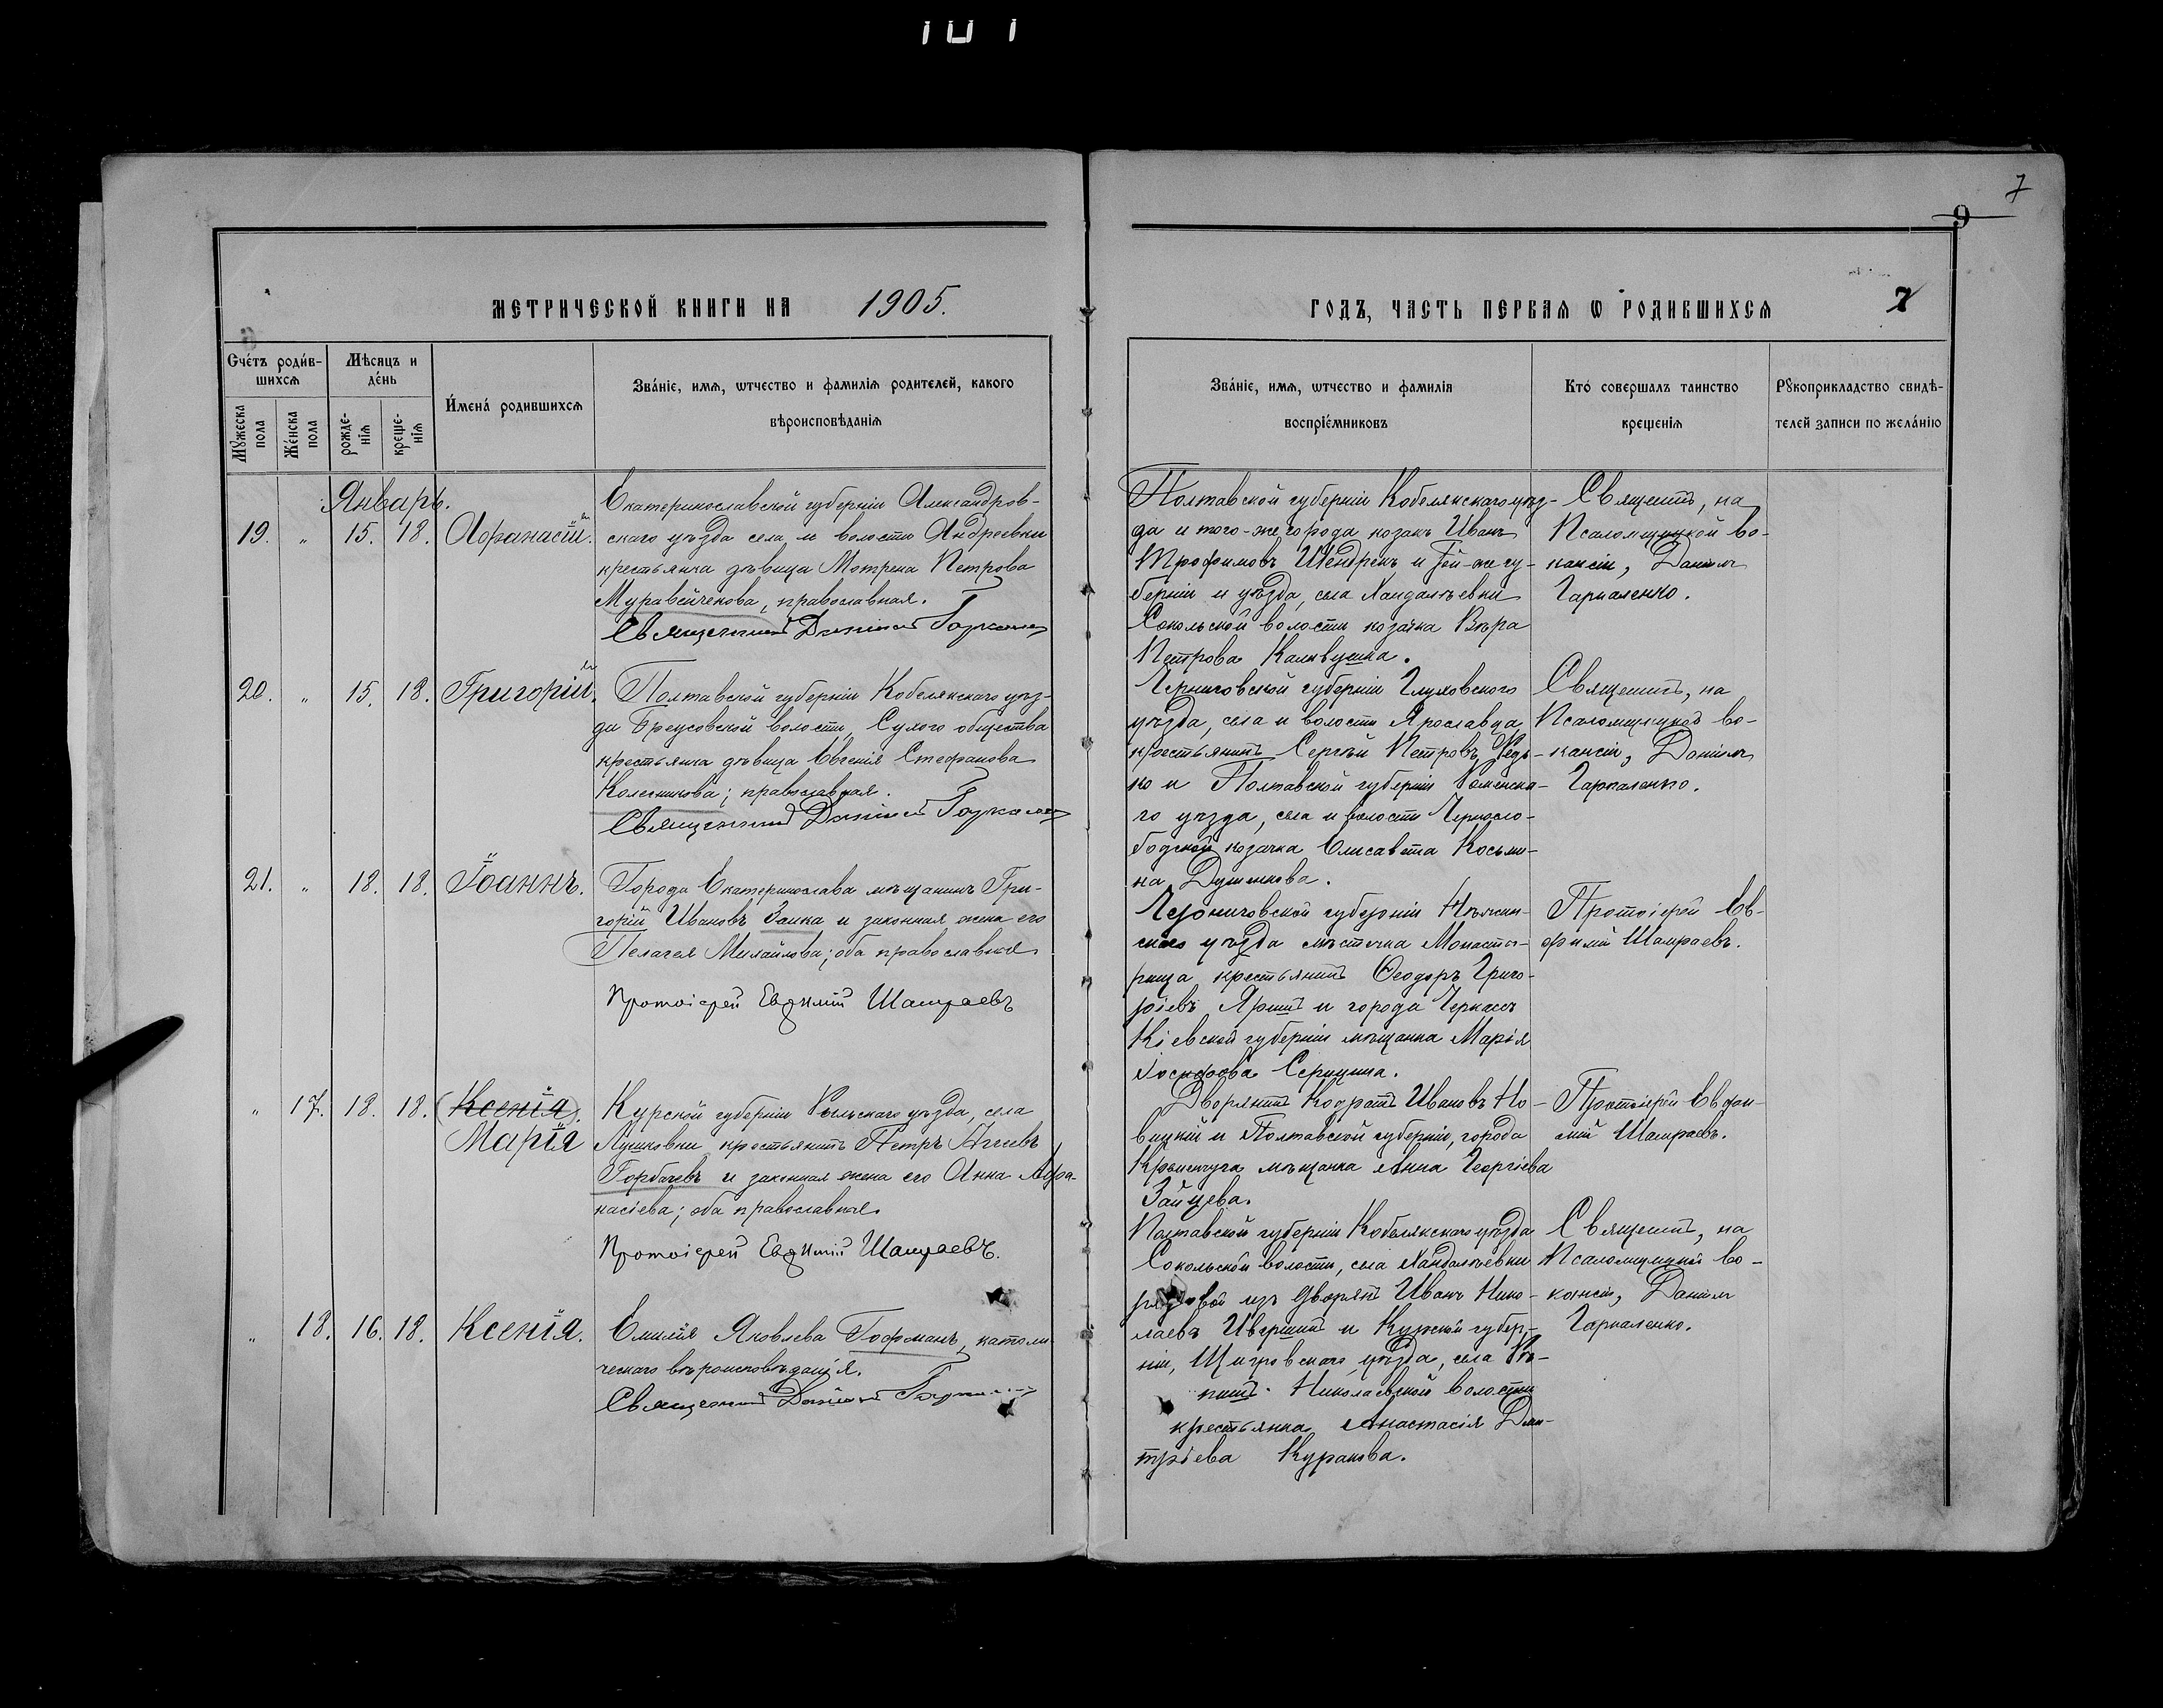 7
9
МЕТРИЧЕСКОЙ КНИГИ НА 1905.
ГОДЪ, ЧАСТЬ ПЕРВАѦ Ѡ РОДИВШИХСѦ
7
Счéтъ родúв-
шихсѧ
Мѣсяцъ и
дéнь
Мꙋжеска пола
Жéнска пола
рожде-
нїѧ
креще-
нїѧ
И́менá родившихсѧ
Звáнїе, имѧ, ѿчество и фамилїѧ родителей, какого
вѣроисповѣданїѧ
Звáнїе, имѧ, ѿчество и фамилїѧ
воспрїéмниковъ
Ктó совершалъ таинство
крещенїѧ
Рꙋкоприкладство свидѣ-
телей записи по желáнїю
Январь.
19. " 15. 18. Афанасій.
Екатеринославской губерніи Александров-
скаго уѣзда села и волости Андреевки
крестьянка дѣвица Мотрена Петрова
Муравейченкова, православная.
Священникъ Даніилъ
Полтавской губерніи Кобелякскаго уѣз-
да и того-же города козакъ Иванъ
Трофимовъ Шендрикъ и той-же гу-
берніи и уѣзда, села Хандалѣевки
Сокольской волости козачка Вѣра
Петрова
Священникъ, на
Псаломщицкой ва-
кансіи, Даніилъ
Гаркаленко.
20. " 15. 18. Григорій.
Полтавской губерніи Кобелякскаго уѣз-
да Бреусовской волости, Сухого общества
крестьянка дѣвица Евгенія Стефанова
Колесникова; православная.
Священникъ Даніилъ
Черниговской губерніи Глуховского
уѣзда, села и волости Ярославца
крестьянинъ Сергѣй Петровъ
и Полтавской губерніи Роменска-
го уѣзда, села и волости
козачка Елисавета Косьми-
на
Священникъ, на
Псаломщицкой ва-
кансіи, Даніилъ
Гаркаленко.
21. " 18. 18. Іоаннъ.
Города Екатеринослава мѣщанинъ Гри-
горій Ивановъ Заика и законная жена его
Пелагея Михайлова; оба православные.
Протоіерей Евфимій Шамраевъ
Черниговской губерніи Нѣжин-
скаго уѣзда мѣстечка Монасты-
рища крестьянинъ Феодоръ Григо-
ріевъ и города Черкасъ
Кіевской губерніи мѣщанка Марія
Іосифова
Протоіерей Ев-
фимій Шамраевъ.
" 17. 18. 18. (Ксенія)
Марія
Курской губерніи Рыльскаго уѣзда, села
крестьянинъ Петръ
Горбачевъ и законная жена его Анна Афа-
насіева; оба православные.
Протоіерей Евфимій Шамраевъ.
Дворянинъ Кодратъ Ивановъ Но-
вицкій и Полтавской губерніи, города
Кременчуга мѣщанка Анна Георгіева
Зайцева.
Протоіерей Евфи-
мій Шамраевъ.
" 18. 16. 18. Ксенія.
Емилія Яковлева Гофманъ, католи-
ческаго вѣроисповѣданія.
Священникъ Даніилъ
Полтавской губерніи Кобелякскаго уѣзда
Сокольской волости, села Хандалѣевки
рядовой изъ дворянъ Иванъ Нико-
лаевъ и Курской губер-
ніи, Щигровскаго уѣзда, села
Николаевской волости
крестьянка Анастасія Дми-
тріева Куракова.
Священникъ, на
Псаломщицкой ва-
кансіи, Даніилъ
Гаркаленко.